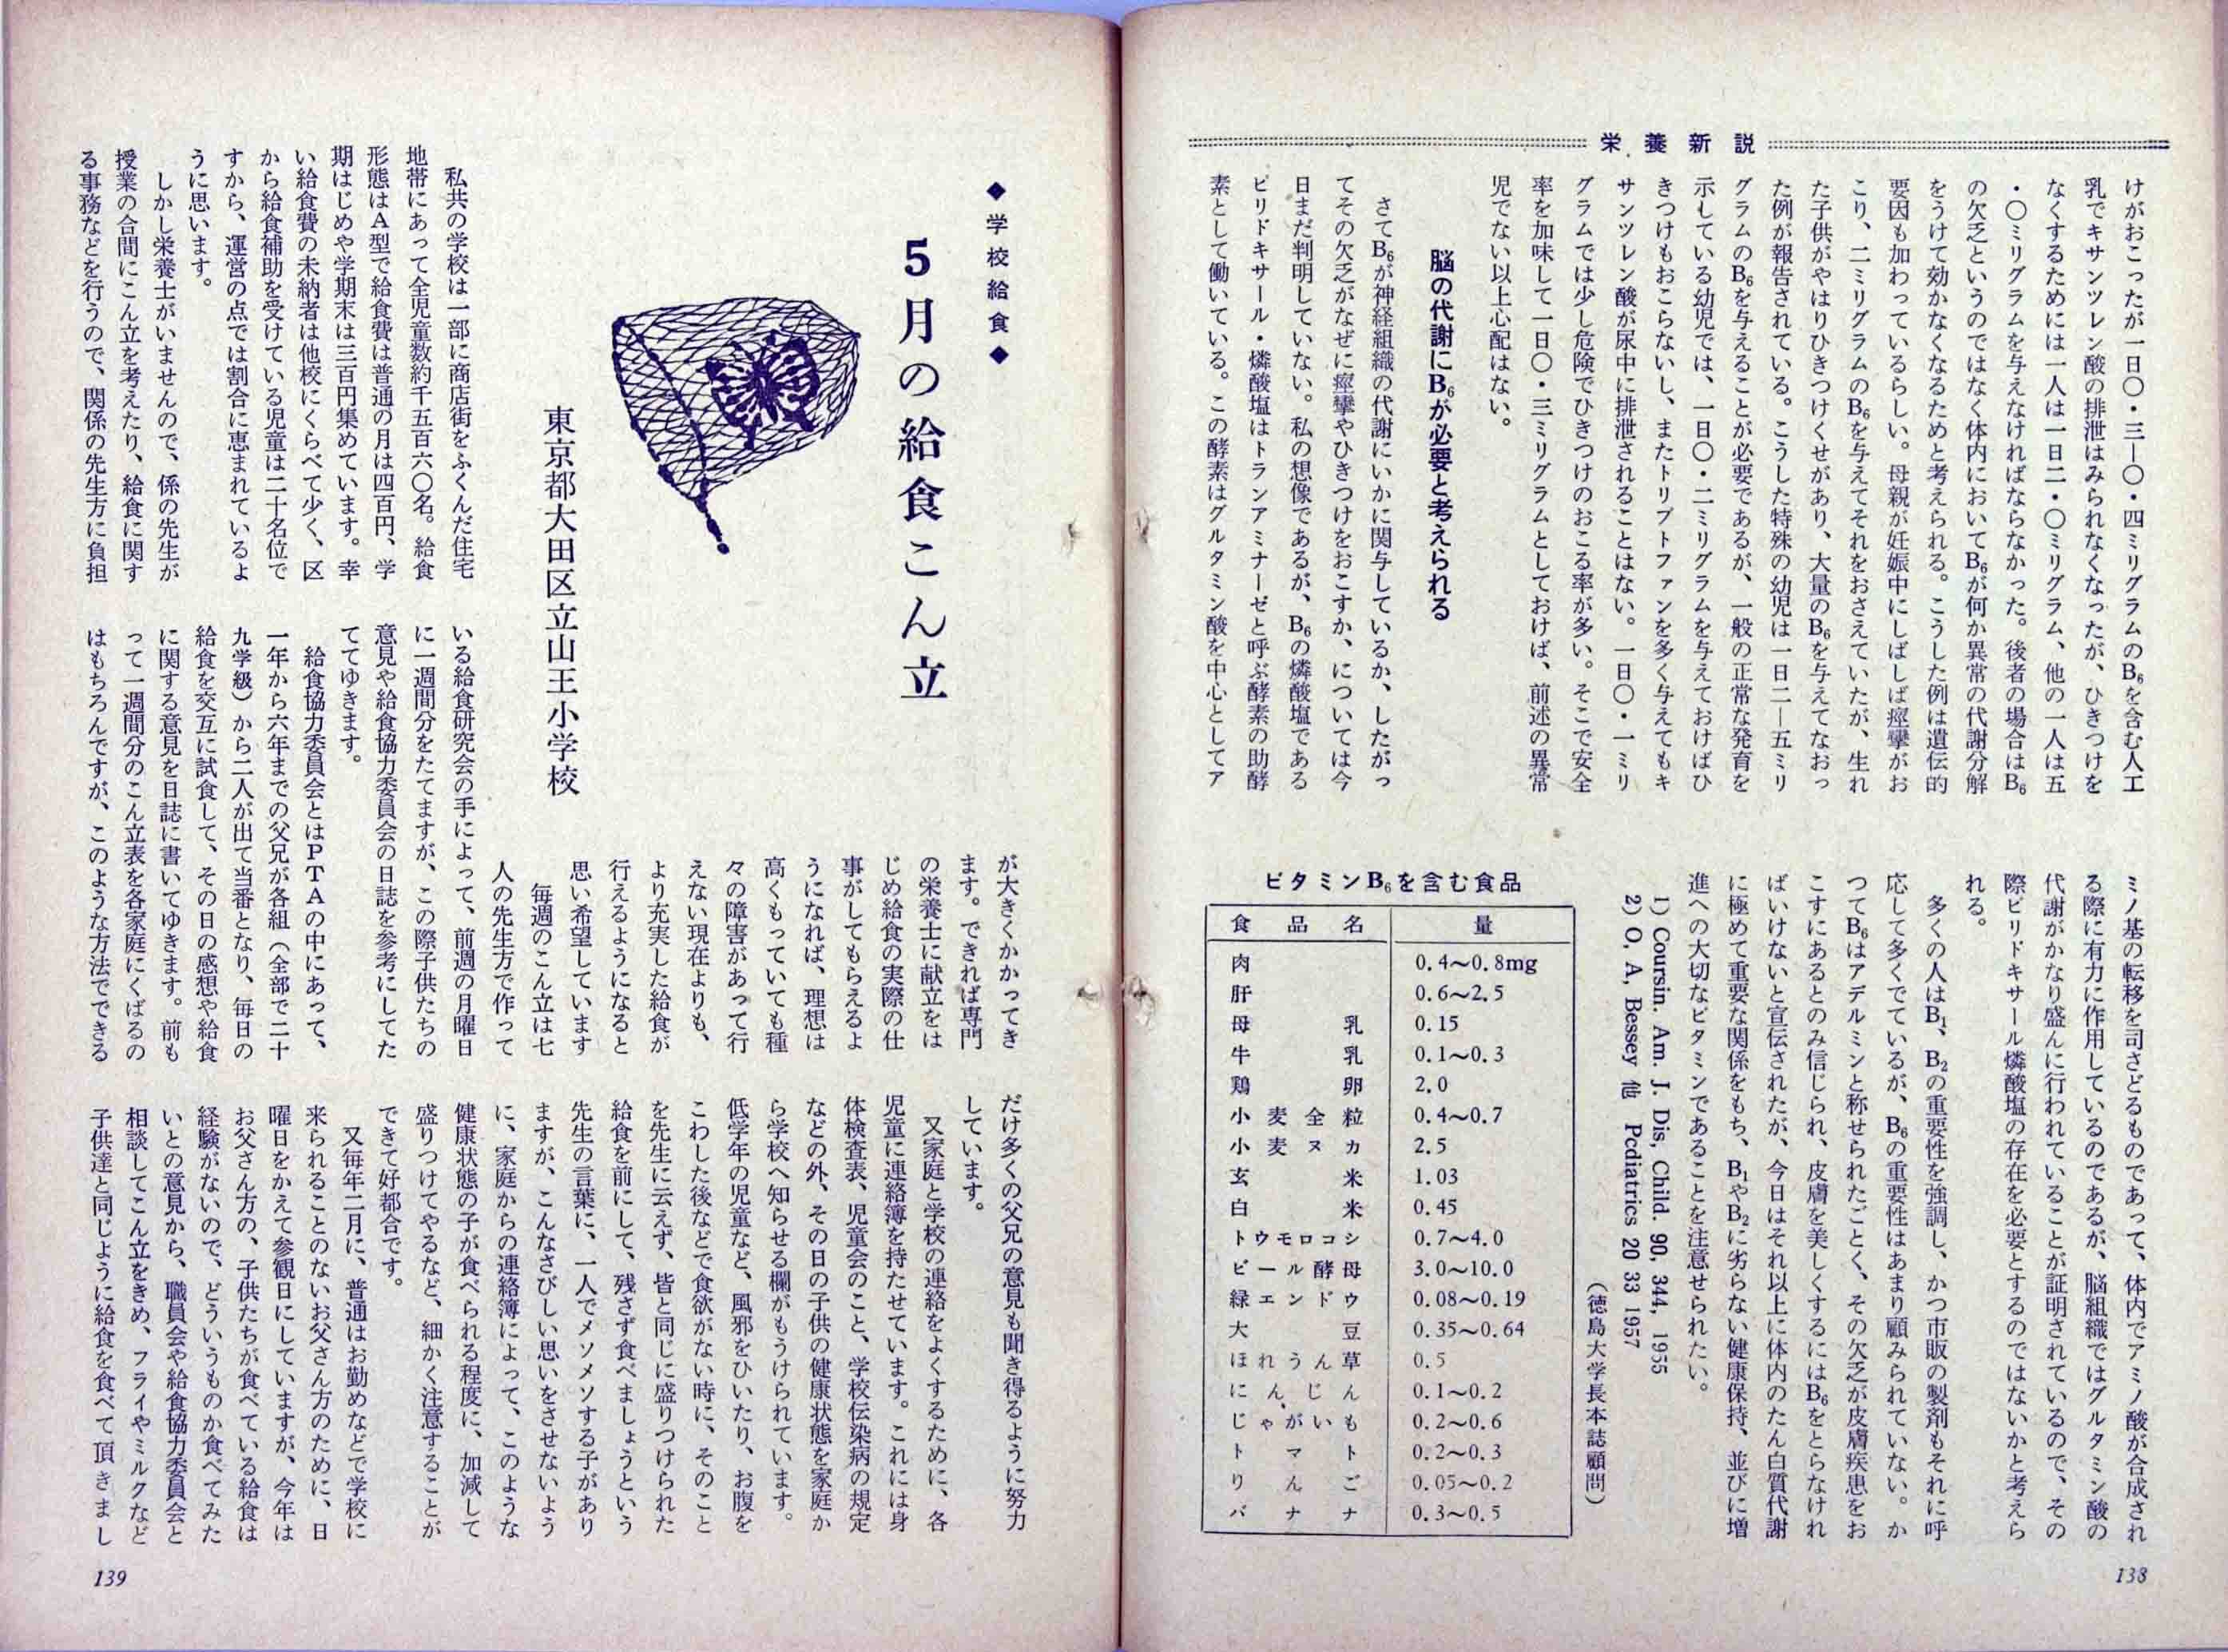 栄養新説
けがおこったが一日〇・三―〇・四ミリグラムのB₆を含む人工
乳でキサンツレン酸の排泄はみられなくなったが、ひきつけを
なくするためには一人は一日二・〇ミリグラム、他の一人は五
・〇ミリグラムを与えなければならなかった。後者の場合はB₆
の欠乏というのではなく体内においてB₆が何か異常の代謝分解
をうけて効かなくなるためと考えられる。こうした例は遺伝的
要因も加わっているらしい。母親が妊娠中にしばしば痙攣がお
こり、二ミリグラムのB₆を与えてそれをおさえていたが、生れ
た子供がやはりひきつけくせがあり、大量のB₆を与えてなおっ
た例が報告されている。こうした特殊の幼児は一日二―五ミリ
グラムのB₆を与えることが必要であるが、一般の正常な発育を
示している幼児では、一日〇・二ミリグラムを与えておけばひ
きつけもおこらないし、またトリプトファンを多く与えてもキ
サンツレン酸が尿中に排泄されることはない。一日〇・一ミリ
グラムでは少し危険でひきつけのおこる率が多い。そこで安全
率を加味して一日〇・三ミリグラムとしておけば、前述の異常
児でない以上心配はない。
脳の代謝にB₆が必要と考えられる
さてB₆が神経組織の代謝にいかに関与しているか、したがっ
てその欠乏がなぜに痙攣やひきつけをおこすか、については今
日まだ判明していない。私の想像であるが、B₆の燐酸塩である
ピリドキサール・燐酸塩はトランアミナーゼと呼ぶ酵素の助酵
素として働いている。この酵素はグルタミン酸を中心としてア
ミノ基の転移を司さどるものであって、体内でアミノ酸が合成され
る際に有力に作用しているのであるが、脳組織ではグルタミン酸の
代謝がかなり盛んに行われていることが証明されているので、その
際ピリドキサール燐酸塩の存在を必要とするのではないかと考えら
れる。
多くの人はB₁、B₂の重要性を強調し、かつ市販の製剤もそれに呼
応して多くでているが、B₆の重要性はあまり顧みられていない。か
つてB₆はアデルミンと称せられたごとく、その欠乏が皮膚疾患をお
こすにあるとのみ信じられ、皮膚を美しくするにはB₆をとらなけれ
ばいけないと宣伝されたが、今日はそれ以上に体内のたん白質代謝
に極めて重要な関係をもち、B₁やB₂に劣らない健康保持、並びに増
進への大切なビタミンであることを注意せられたい。
1) Coursin. Am. J. Dis, Child. 90, 344, 1955
2) O, A, Bessey 他 Pcdiatrics 20 33 1957
（徳島大学長本誌顧問）
ビタミンB₆を含む食品
食品名 量
肉 0.4〜0.8mg
肝 0.6〜2.5
母乳 0.15
牛乳 0.1〜0.3
鶏卵 2.0
小麦全粒 0.4〜0.7
小麦ヌカ 2.5
玄米 1.03
白米 0.45
トウモロコシ 0.7〜4.0
ビール酵母 3.0〜10.0
緑エンドウ 0.08〜0.19
大豆 0.35〜0.64
ほれうん草 0.5
にんじん 0.1〜0.2
じゃがいも 0.2〜0.6
トマト 0.2〜0.3
りんご 0.05〜0.2
バナナ 0.3〜0.5
138
◆学校給食◆
5月の給食こん立
東京都大田区立山王小学校
私共の学校は一部に商店街をふくんだ住宅
地帯にあって全児童数約千五百六〇名。給食
形態はA型で給食費は普通の月は四百円、学
期はじめや学期末は三百円集めています。幸
い給食費の未納者は他校にくらべて少く、区
から給食補助を受けている児童は二十名位で
すから、運営の点では割合に恵まれているよ
うに思います。
しかし栄養士がいませんので、係の先生が
授業の合間にこん立を考えたり、給食に関す
る事務などを行うので、関係の先生方に負担
が大きくかかってき
ます。できれば専門
の栄養士に献立をは
じめ給食の実際の仕
事がしてもらえるよ
うになれば、理想は
高くもっていても種
々の障害があって行
えない現在よりも、
より充実した給食が
行えるようになると
思い希望しています
毎週のこん立は七
人の先生方で作って
いる給食研究会の手によって、前週の月曜日
に一週間分をたてますが、この際子供たちの
意見や給食協力委員会の日誌を参考にしてた
ててゆきます。
給食協力委員会とはPTAの中にあって、
一年から六年までの父兄が各組（全部で二十
九学級）から二人が出て当番となり、毎日の
給食を交互に試食して、その日の感想や給食
に関する意見を日誌に書いてゆきます。前も
って一週間分のこん立表を各家庭にくばるの
はもちろんですが、このような方法でできる
だけ多くの父兄の意見も聞き得るように努力
しています。
又家庭と学校の連絡をよくするために、各
児童に連絡簿を持たせています。これには身
体検査表、児童会のこと、学校伝染病の規定
などの外、その日の子供の健康状態を家庭か
ら学校へ知らせる欄がもうけられています。
低学年の児童など、風邪をひいたり、お腹を
こわした後などで食欲がない時に、そのこと
を先生に云えず、皆と同じに盛りつけられた
給食を前にして、残さず食べましょうという
先生の言葉に、一人でメソメソする子があり
ますが、こんなさびしい思いをさせないよう
に、家庭からの連絡簿によって、このような
健康状態の子が食べられる程度に、加減して
盛りつけてやるなど、細かく注意することが
できて好都合です。
又毎年二月に、普通はお勤めなどで学校に
来られることのないお父さん方のために、日
曜日をかえて参観日にしていますが、今年は
お父さん方の、子供たちが食べている給食は
経験がないので、どういうものか食べてみた
いとの意見から、職員会や給食協力委員会と
相談してこん立をきめ、フライやミルクなど
子供達と同じように給食を食べて頂きまし
139